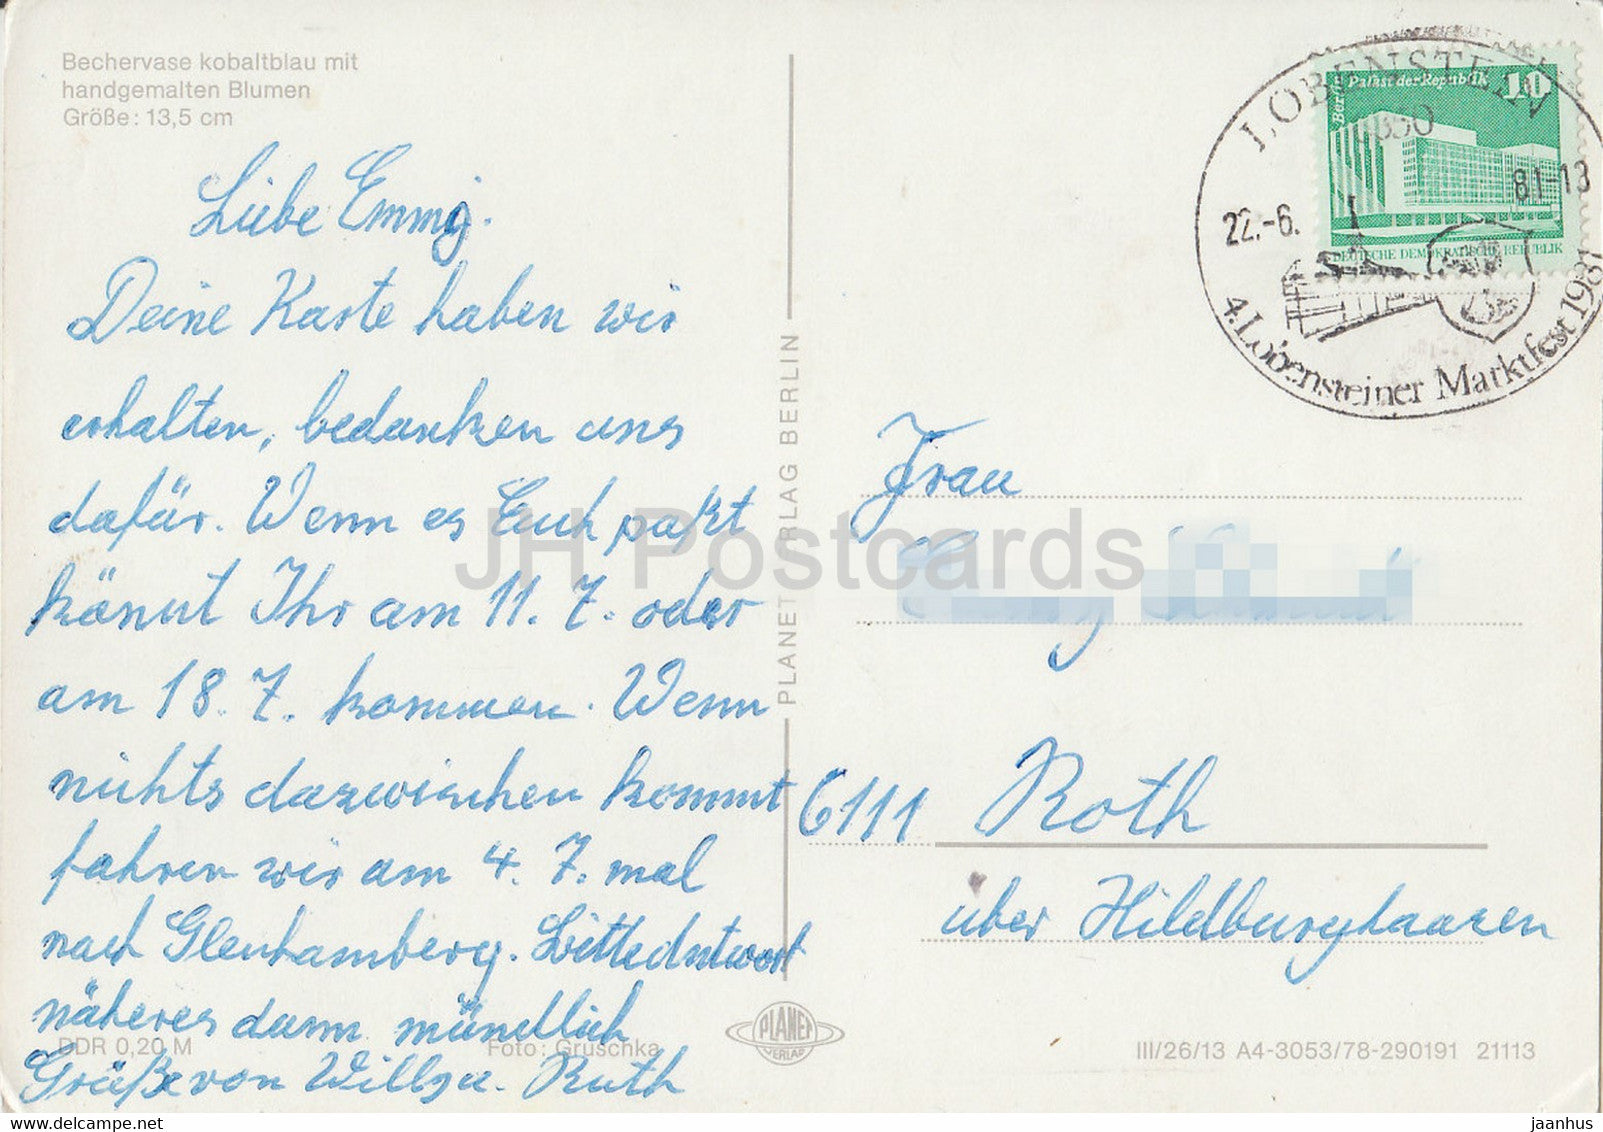 Bechervase kobaltblau mit
handgemalten Blumen
Größe: 13,5 cm
Liebe Emmi.
Deine Karte haben wir
erhalten, bedanken uns
dafür. Wenn es Euch paßt
könnt Ihr am 11. 7. oder
am 18. 7. kommen. Wenn
nichts dazwischen kommt
fahren wir am 4. 7. mal
nach Gleichamberg. Bitte Antwort
näheres dann mündlich
Grüße von Willy u. Ruth
DDR 0,20 M
Foto: Gruschka
PLANET-VERLAG BERLIN
PLANET
VERLAG
LOBENSTEIN
22.-6.
81-13
4. Lobensteiner Marktfest 1981
Berlin Palast der Republik 10
DEUTSCHE DEMOKRATISCHE REPUBLIK
Frau
6111 Roth
über Hildburghausen
III/26/13 A4-3053/78-290191 21113
JH Postcards
delcampe.net
jaanhus